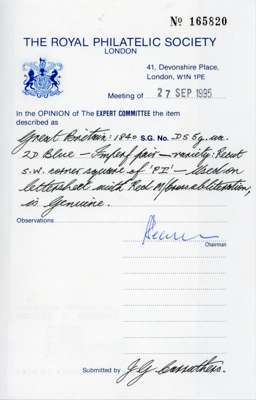 Nº 165820
THE ROYAL PHILATELIC SOCIETY
LONDON
41, Devonshire Place,
London, W1N 1PE
Meeting of 27 SEP 1995
In the OPINION of The EXPERT COMMITTEE the item
described as
Great Britain: 1840 S.G. No. DS5g.wa.
2D Blue - Imperf pair - variety: Recut
S.W. corner square of 'PI' - Used on
lettersheet with Red M/Cross obliteration,
is Genuine.
Observations
Chairman
Submitted by J G Carrathers.